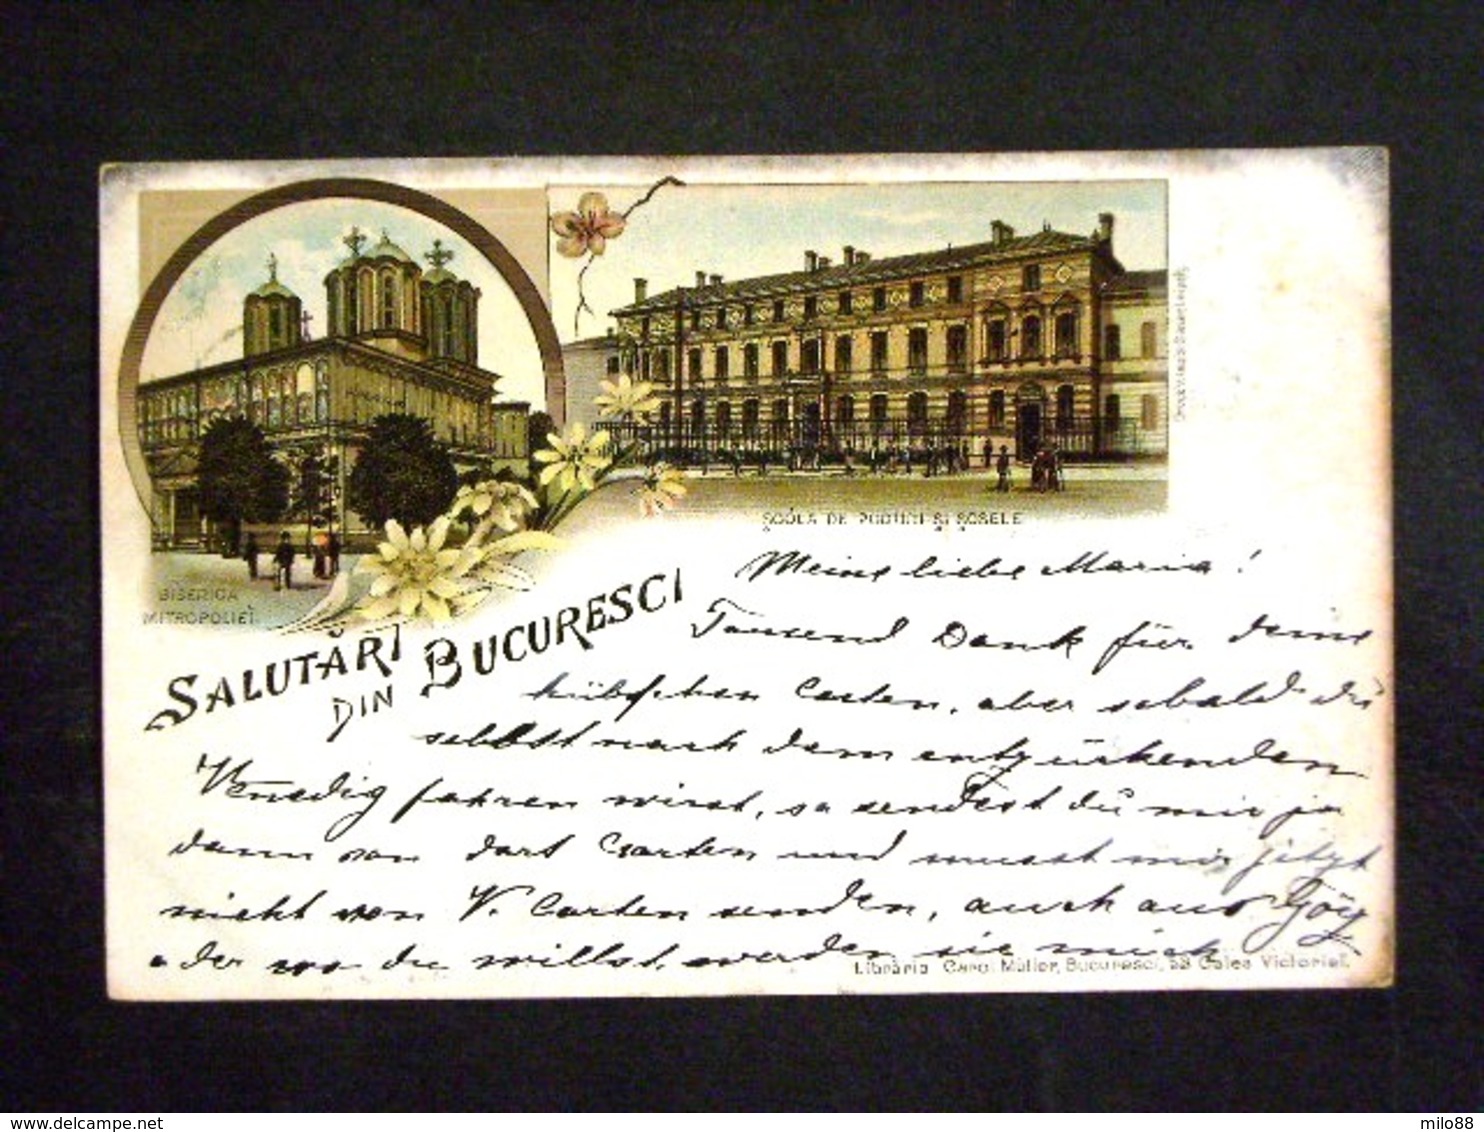 BISERICA
MITROPOLIEI.
ȘCÓLA DE PODURI ȘI ȘOSELE
SALUTĂRI
DIN BUCURESCI
Meine liebe Maria!
Tausend Dank für deine
hübschen Carten, aber sobald du
selbst nach dem entzückenden
Venedig fahren wirst, so sendest du mir ja
dann von dort Carten und musst mir jetzt
nicht von V. Carten senden, auch aus
oder wo du willst, werden sie mich
Librăria Carol Müller, Bucuresci, 53 Calea Victoriei.
milo88